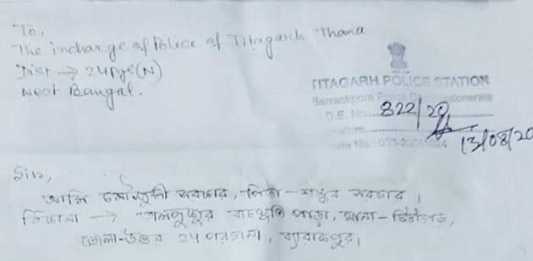 To,
The incharge of Police of Titagarh Thana
Dist → 24 Pgs (N)
West Bangal.
TITAGARH POLICE STATION
Barrackpore Police
D.E. No. 822/20
13/08/20
Sir,
আমি মৌসুমী সরকার, পিতা - শম্ভু সরকার।
ঠিকানা → পাড়া, থানা - টিটাগড়,
জেলা - উত্তর ২৪ পরগনা, ব্যারাকপুর।